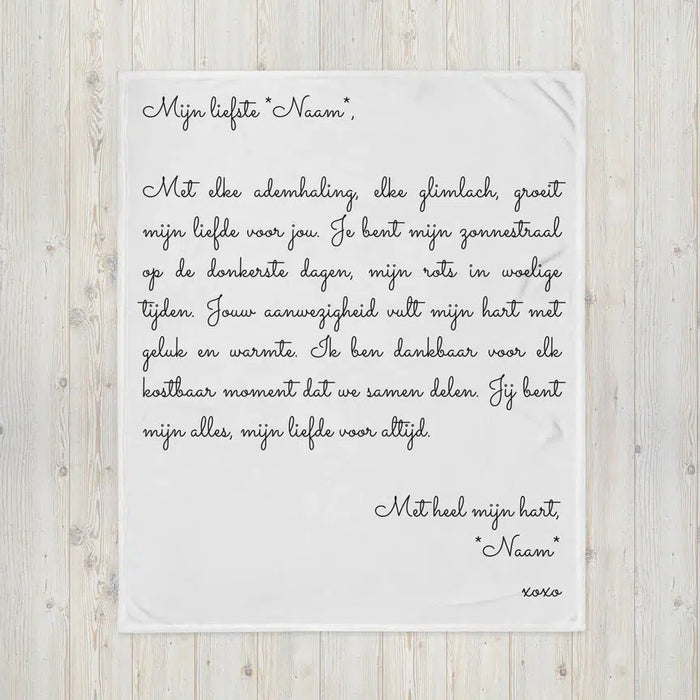 Mijn liefste *Naam*,
Met elke ademhaling, elke glimlach, groeit
mijn liefde voor jou. Je bent mijn zonnestraal
op de donkerste dagen, mijn rots in woelige
tijden. Jouw aanwezigheid vult mijn hart met
geluk en warmte. Ik ben dankbaar voor elk
kostbaar moment dat we samen delen. Jij bent
mijn alles, mijn liefde voor altijd.
Met heel mijn hart,
*Naam*
xoxo